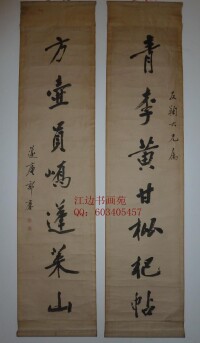 青李黄甘枇杷帖
方壶员峤蓬莱山
江边书画苑
QQ：603405457